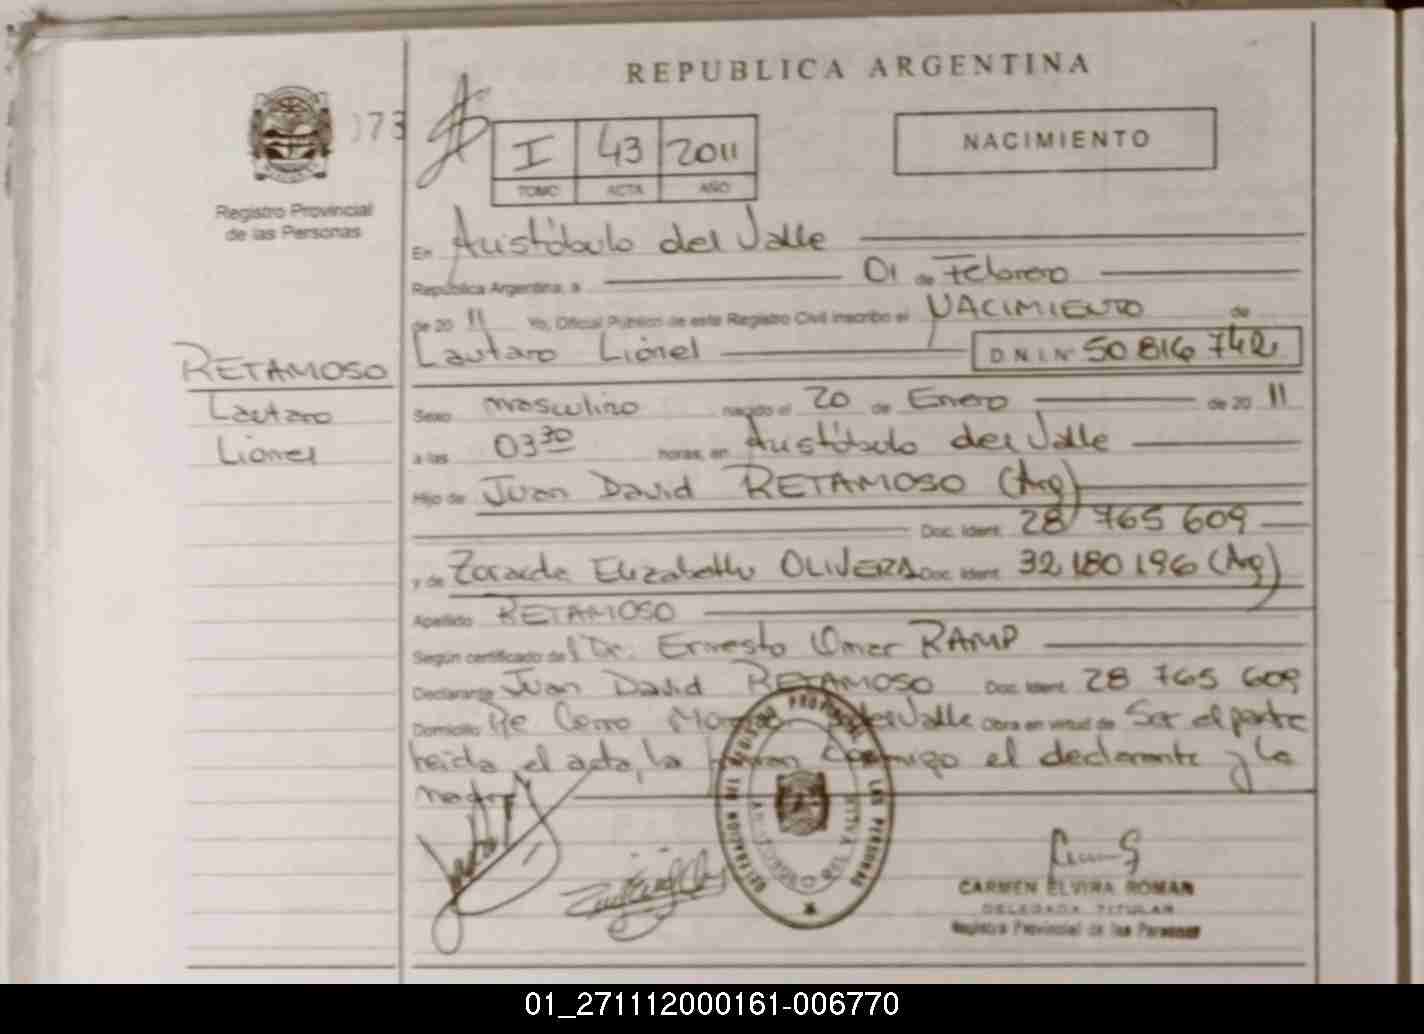 REPUBLICA ARGENTINA
073
I 43 2011
TOMO ACTA AÑO
NACIMIENTO
Registro Provincial
de las Personas
En Aristóbulo del Valle
República Argentina, a 01 de Febrero
de 20 11 Yo, Oficial Público de este Registro Civil inscribo el NACIMIENTO de
Lautaro Lionel D.N.I. Nº 50 816 742
RETAMOSO
Lautaro
Lionel
Sexo masculino nacido el 20 de Enero de 20 11
a las 03 30 horas, en Aristóbulo del Valle
Hijo de Juan David RETAMOSO (Arg)
Doc. Ident. 28 765 609
y de Zoraida Elizabeth OLIVERA Doc. Ident. 32 180 196 (Arg)
Apellido RETAMOSO
Según certificado del Dr. Ernesto Omar RAMP
Declarante Juan David RETAMOSO Doc. Ident. 28 765 609
Domicilio Cerro del Valle Obra en virtud de Ser el padre
leída el acta, la firman conmigo el declarante y la
madre
DELEGACION DEL REGISTRO PROVINCIAL DE LAS PERSONAS
ARISTOBULO DEL VALLE
CARMEN ELVIRA ROMAN
DELEGADA TITULAR
Registro Provincial de las Personas
01_271112000161-006770